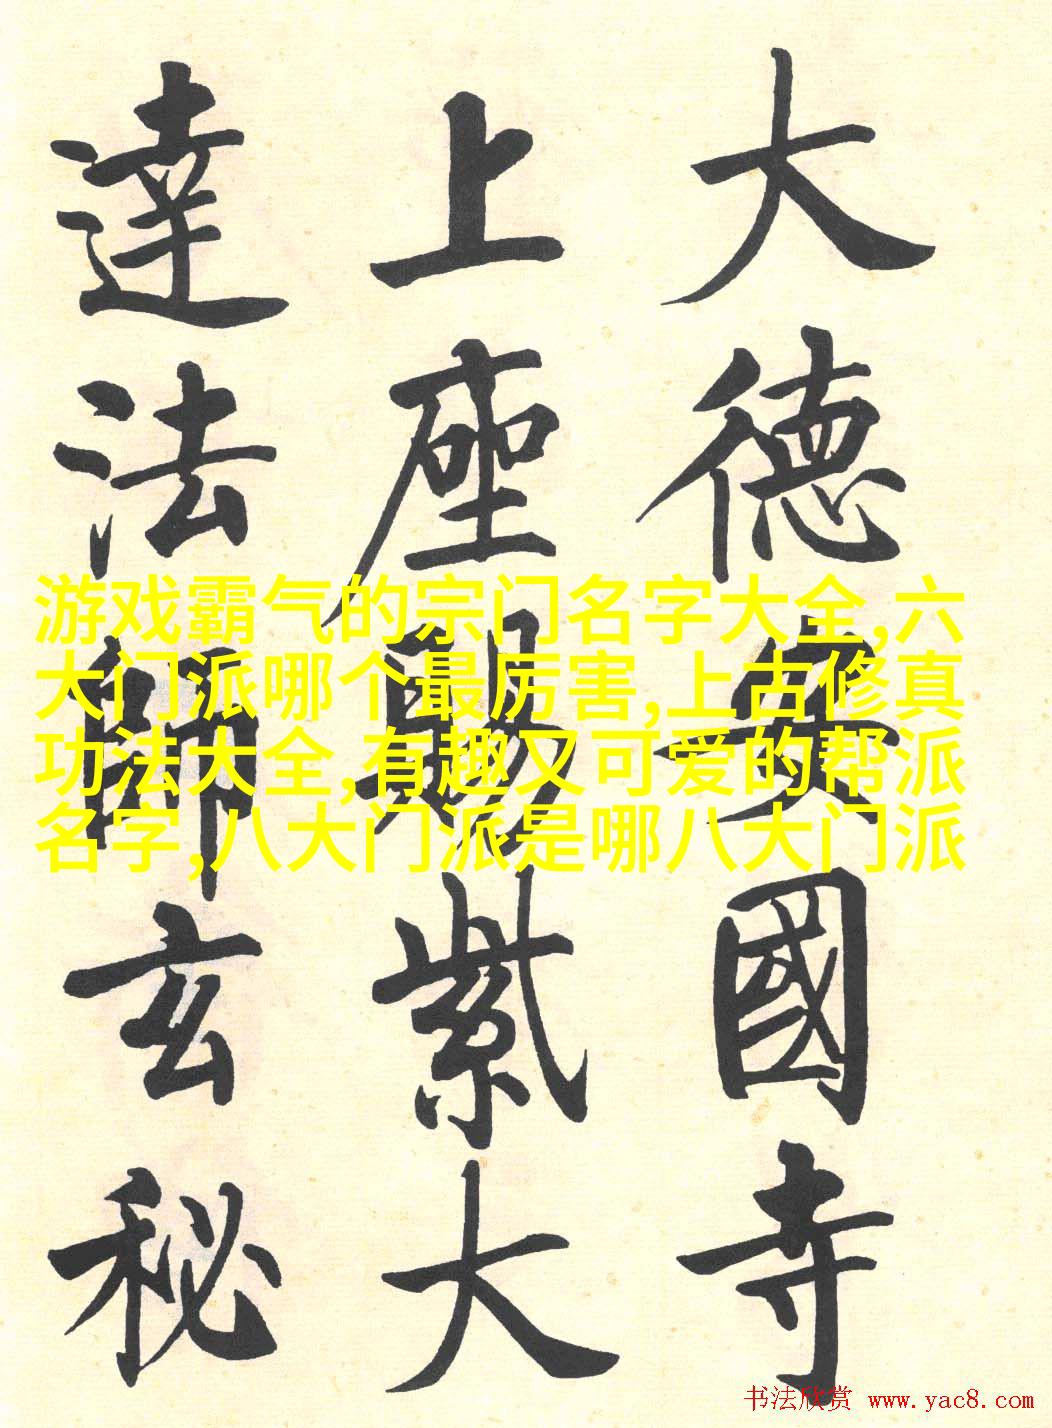 大德安國寺
上座賜紫大
達法師玄秘
游戏霸气的宗门名字大全,六
大门派哪个最厉害,上古修真
功法大全,有趣又可爱的帮派
名字,八大门派是哪八大门派
书法欣赏 www.yac8.com